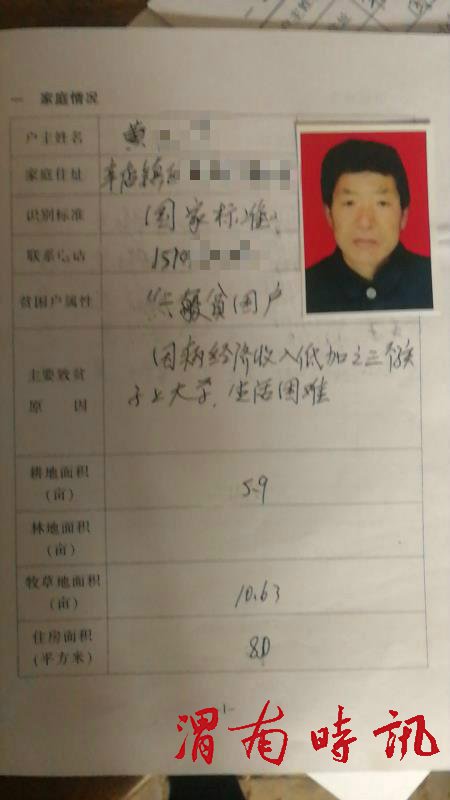 一 家庭情况
户主姓名 黄
家庭住址 车店镇
识别标准 国家标准
联系电话 1519
贫困户属性 一般贫困户
主要致贫原因 因病经济收入低加之三个孩
子上大学，生活困难
耕地面积
(亩) 5.9
林地面积
(亩)
牧草地面积
(亩) 10.63
住房面积
(平方米) 80
-1-
渭南時訊